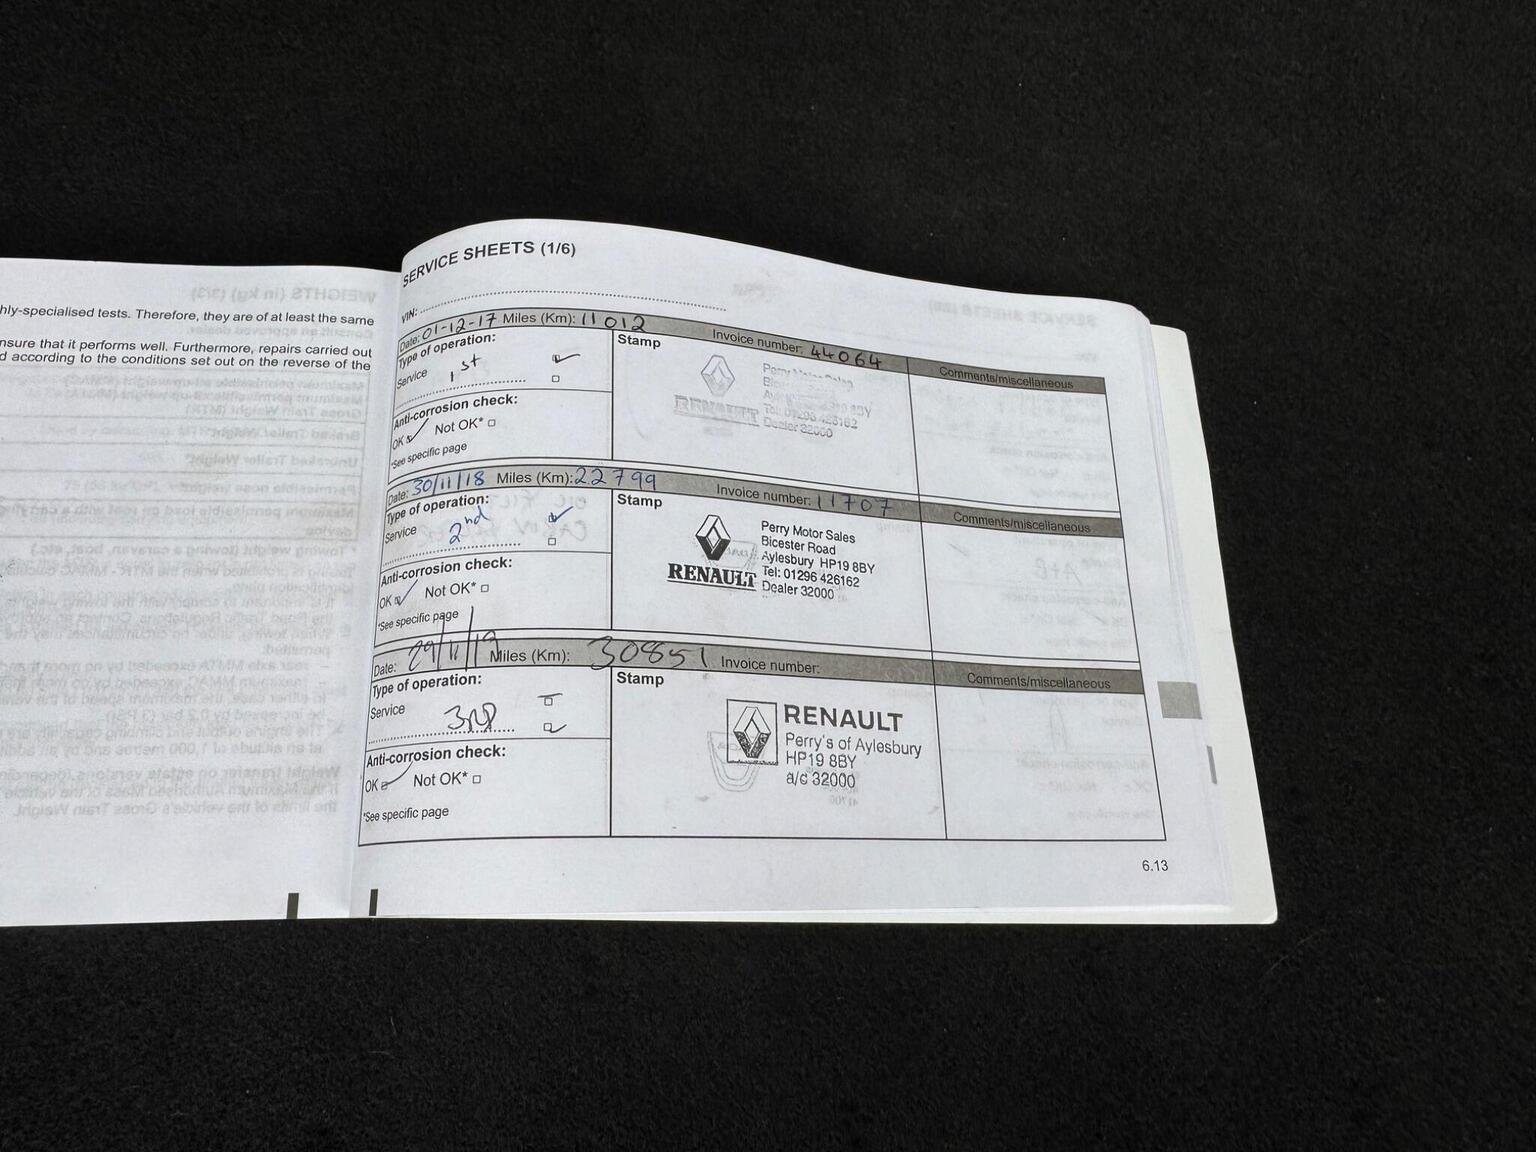 hly-specialised tests. Therefore, they are of at least the same
nsure that it performs well. Furthermore, repairs carried out
d according to the conditions set out on the reverse of the
SERVICE SHEETS (1/6)
VIN:
Date: 01-12-17 Miles (Km): 11012 Invoice number: 44064 Comments/miscellaneous
Type of operation:
Service 1st
Anti-corrosion check:
OK Not OK*
*See specific page
Stamp
RENAULT
Perry Motor Sales
Tel: 01296 426162
Dealer 32000
Date: 30/11/18 Miles (Km): 22799 Invoice number: 11707 Comments/miscellaneous
Type of operation:
Service 2nd
Anti-corrosion check:
OK Not OK*
*See specific page
Stamp
RENAULT
Perry Motor Sales
Bicester Road
Aylesbury HP19 8BY
Tel: 01296 426162
Dealer 32000
Date: 29/11/19 Miles (Km): 30851 Invoice number: Comments/miscellaneous
Type of operation:
Service 3RD
Anti-corrosion check:
OK Not OK*
*See specific page
Stamp
RENAULT
Perry's of Aylesbury
HP19 8BY
a/c 32000
6.13